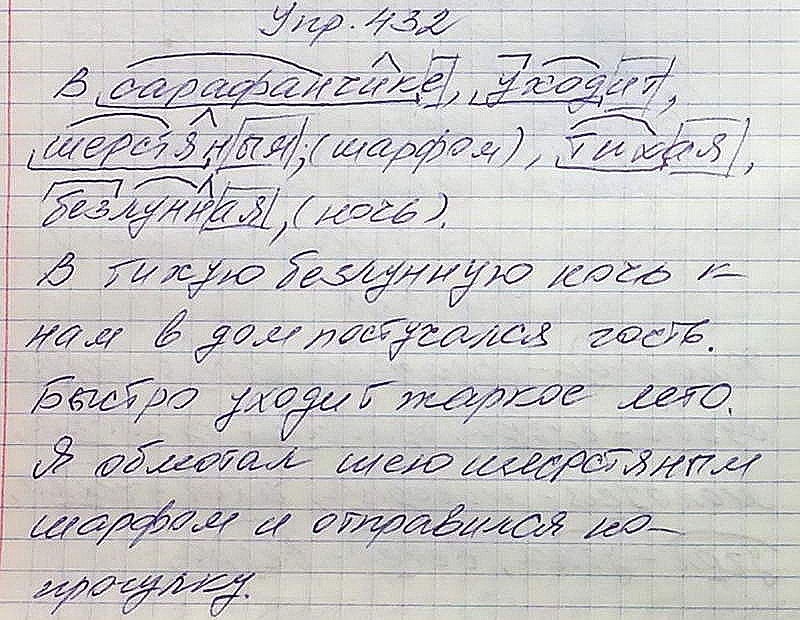 Упр. 432
В сарафанчике, уходит,
шерстяным, (шарфом), тихая,
безлунная, (ночь).
В тихую безлунную ночь к
нам в дом постучался гость.
Быстро уходит жаркое лето.
Я обмотал шею шерстяным
шарфом и отправился на
прогулку.